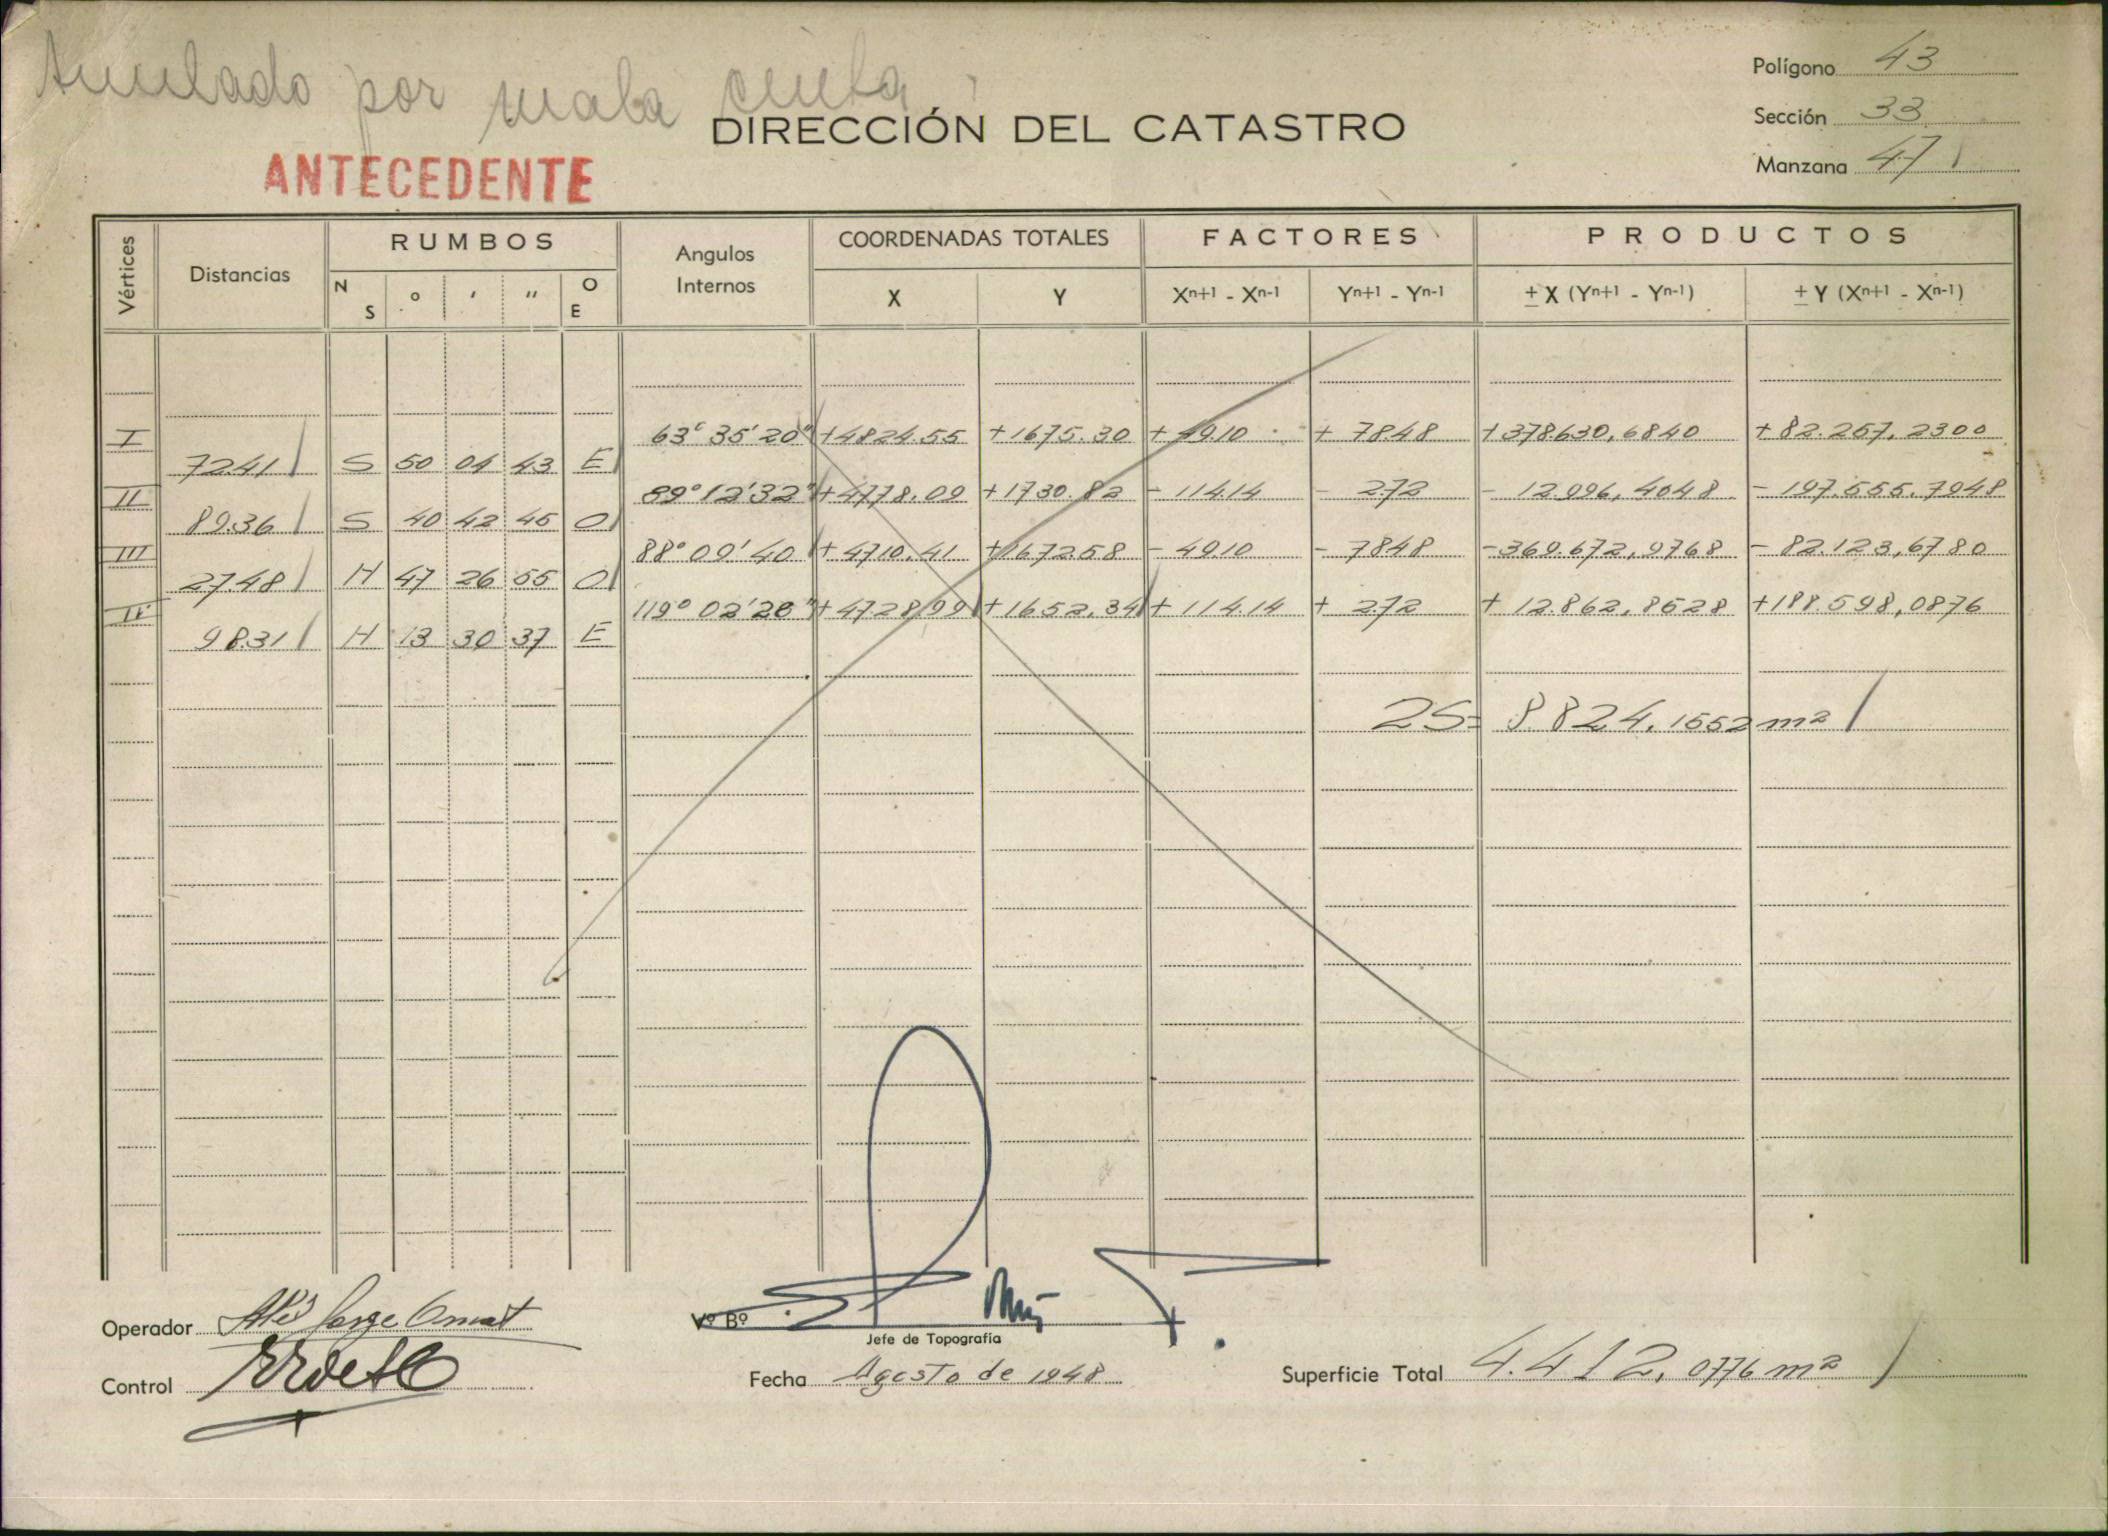 Anulado por mala cinta.
DIRECCIÓN DEL CATASTRO
Polígono 43
Sección 33
Manzana 47
ANTECEDENTE
Vértices Distancias RUMBOS Angulos Internos COORDENADAS TOTALES FACTORES PRODUCTOS
N S ° ' " O E X Y Xn+1 - Xn-1 Yn+1 - Yn-1 ± X (Yn+1 - Yn-1) ± Y (Xn+1 - Xn-1)
I 63° 35' 20" +4824.55 +1675.30 + 49.10 + 78.48 +378.630,6840 +82.257,2300
72.41 S 50 04 43 E
II 89° 12' 32" +4778.09 +1730.82 - 114.14 - 2.72 - 12.996,4048 - 197.555.7948
89.36 S 40 42 45 O
III 88° 09' 40 + 4710.41 +1672.58 - 49.10 - 78.48 -369.672,9768 - 82.123,6780
27.48 N 47 26 55 O
IV 119° 02' 28" + 4728,99 +1652,34 + 114.14 + 2.72 + 12.862,8528 +188.598,0876
98.31 N 13 30 37 E
2S= 8.824,1552 m²
Operador
Vº Bº
Jefe de Topografía
Control
Fecha Agosto de 1948
Superficie Total 4.412,0776 m²